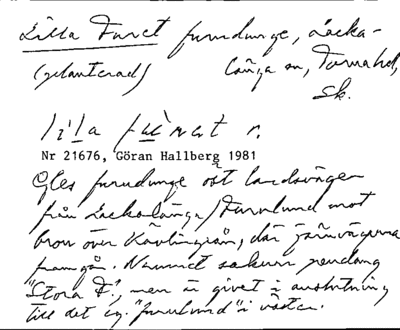 Lilla Furet furudunge, Lacka-
(planterad) långa sn, Torna hd,
Sk.
Nr 21676, Göran Hallberg 1981
Gles furudunge öst landsvägen
från Lackalänga/Furulund mot
bron över Kävlingeån, där järnvägarna
framgå. Namnet saknar pendang
"Stora F.", men är givet i anslutning
till det ey. "furulund" i väster.